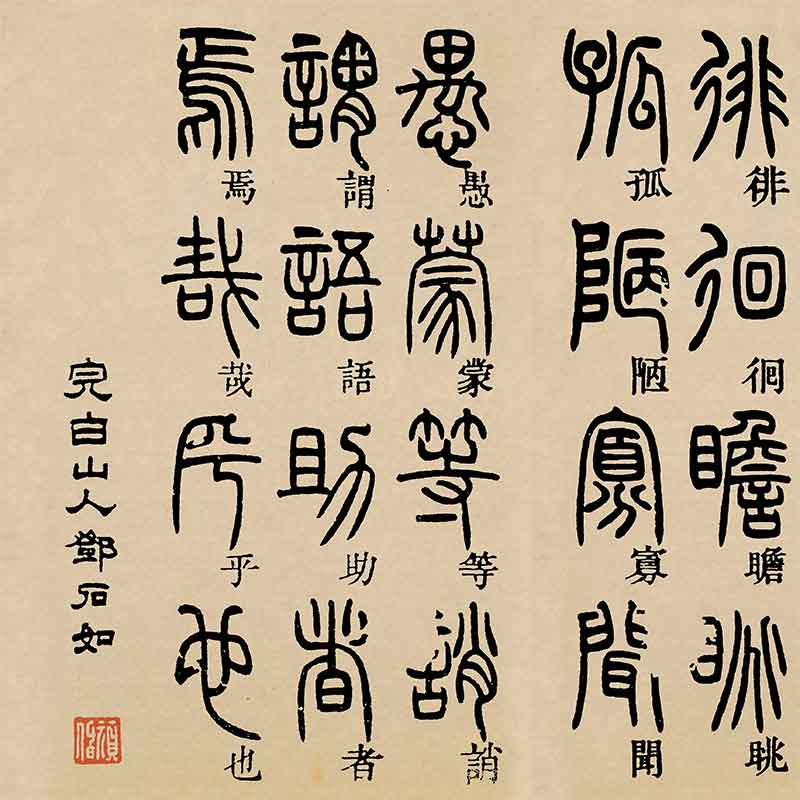 徘徊瞻眺
孤陋寡聞
愚蒙等誚
謂語助者
焉哉乎也
完白山人鄧石如